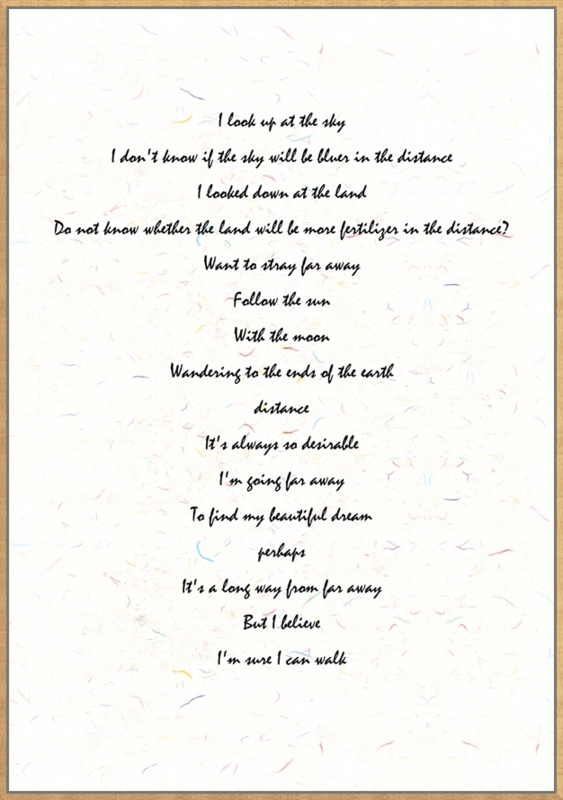 I look up at the sky
I don't know if the sky will be bluer in the distance
I looked down at the land
Do not know whether the land will be more fertilizer in the distance?
Want to stray far away
Follow the sun
With the moon
Wandering to the ends of the earth
distance
It's always so desirable
I'm going far away
To find my beautiful dream
perhaps
It's a long way from far away
But I believe
I'm sure I can walk